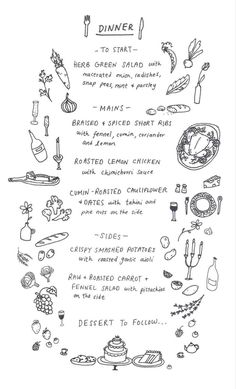 DINNER
- TO START -
HERB GREEN SALAD with
macerated onion, radishes,
snap peas, mint & parsley
- MAINS -
BRAISED & SPICED SHORT RIBS
with fennel, cumin, coriander
and lemon
ROASTED LEMON CHICKEN
with chimichurri sauce
CUMIN-ROASTED CAULIFLOWER
& DATES with tahini and
pine nuts on the side
- SIDES -
CRISPY SMASHED POTATOES
with roasted garlic aioli
RAW & ROASTED CARROT &
FENNEL SALAD with pistachios
on the side
DESSERT TO FOLLOW...